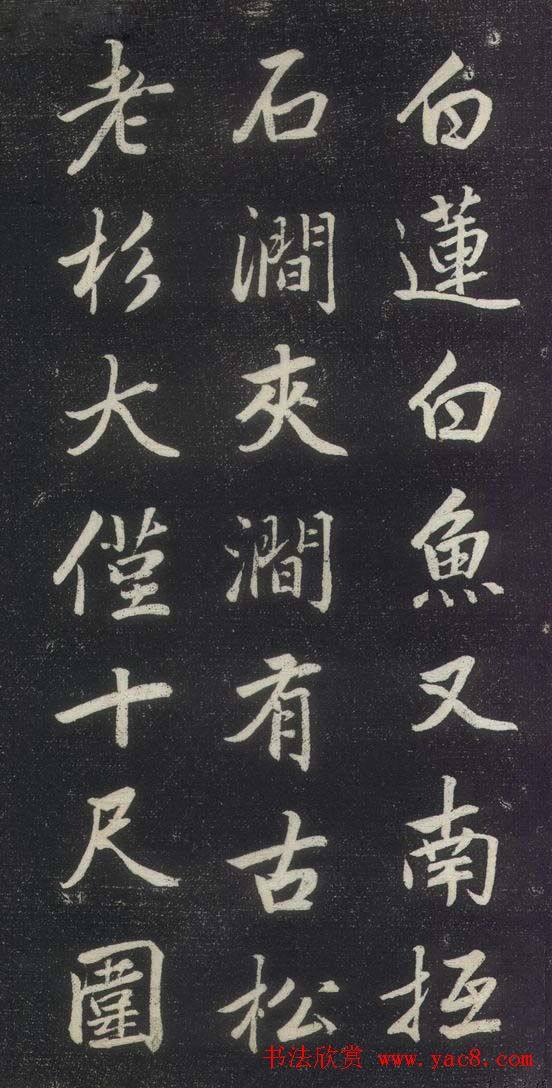 白蓮白魚又南抵
石澗夾澗有古松
老杉大僅十尺圍
书法欣赏 www.yac8.com